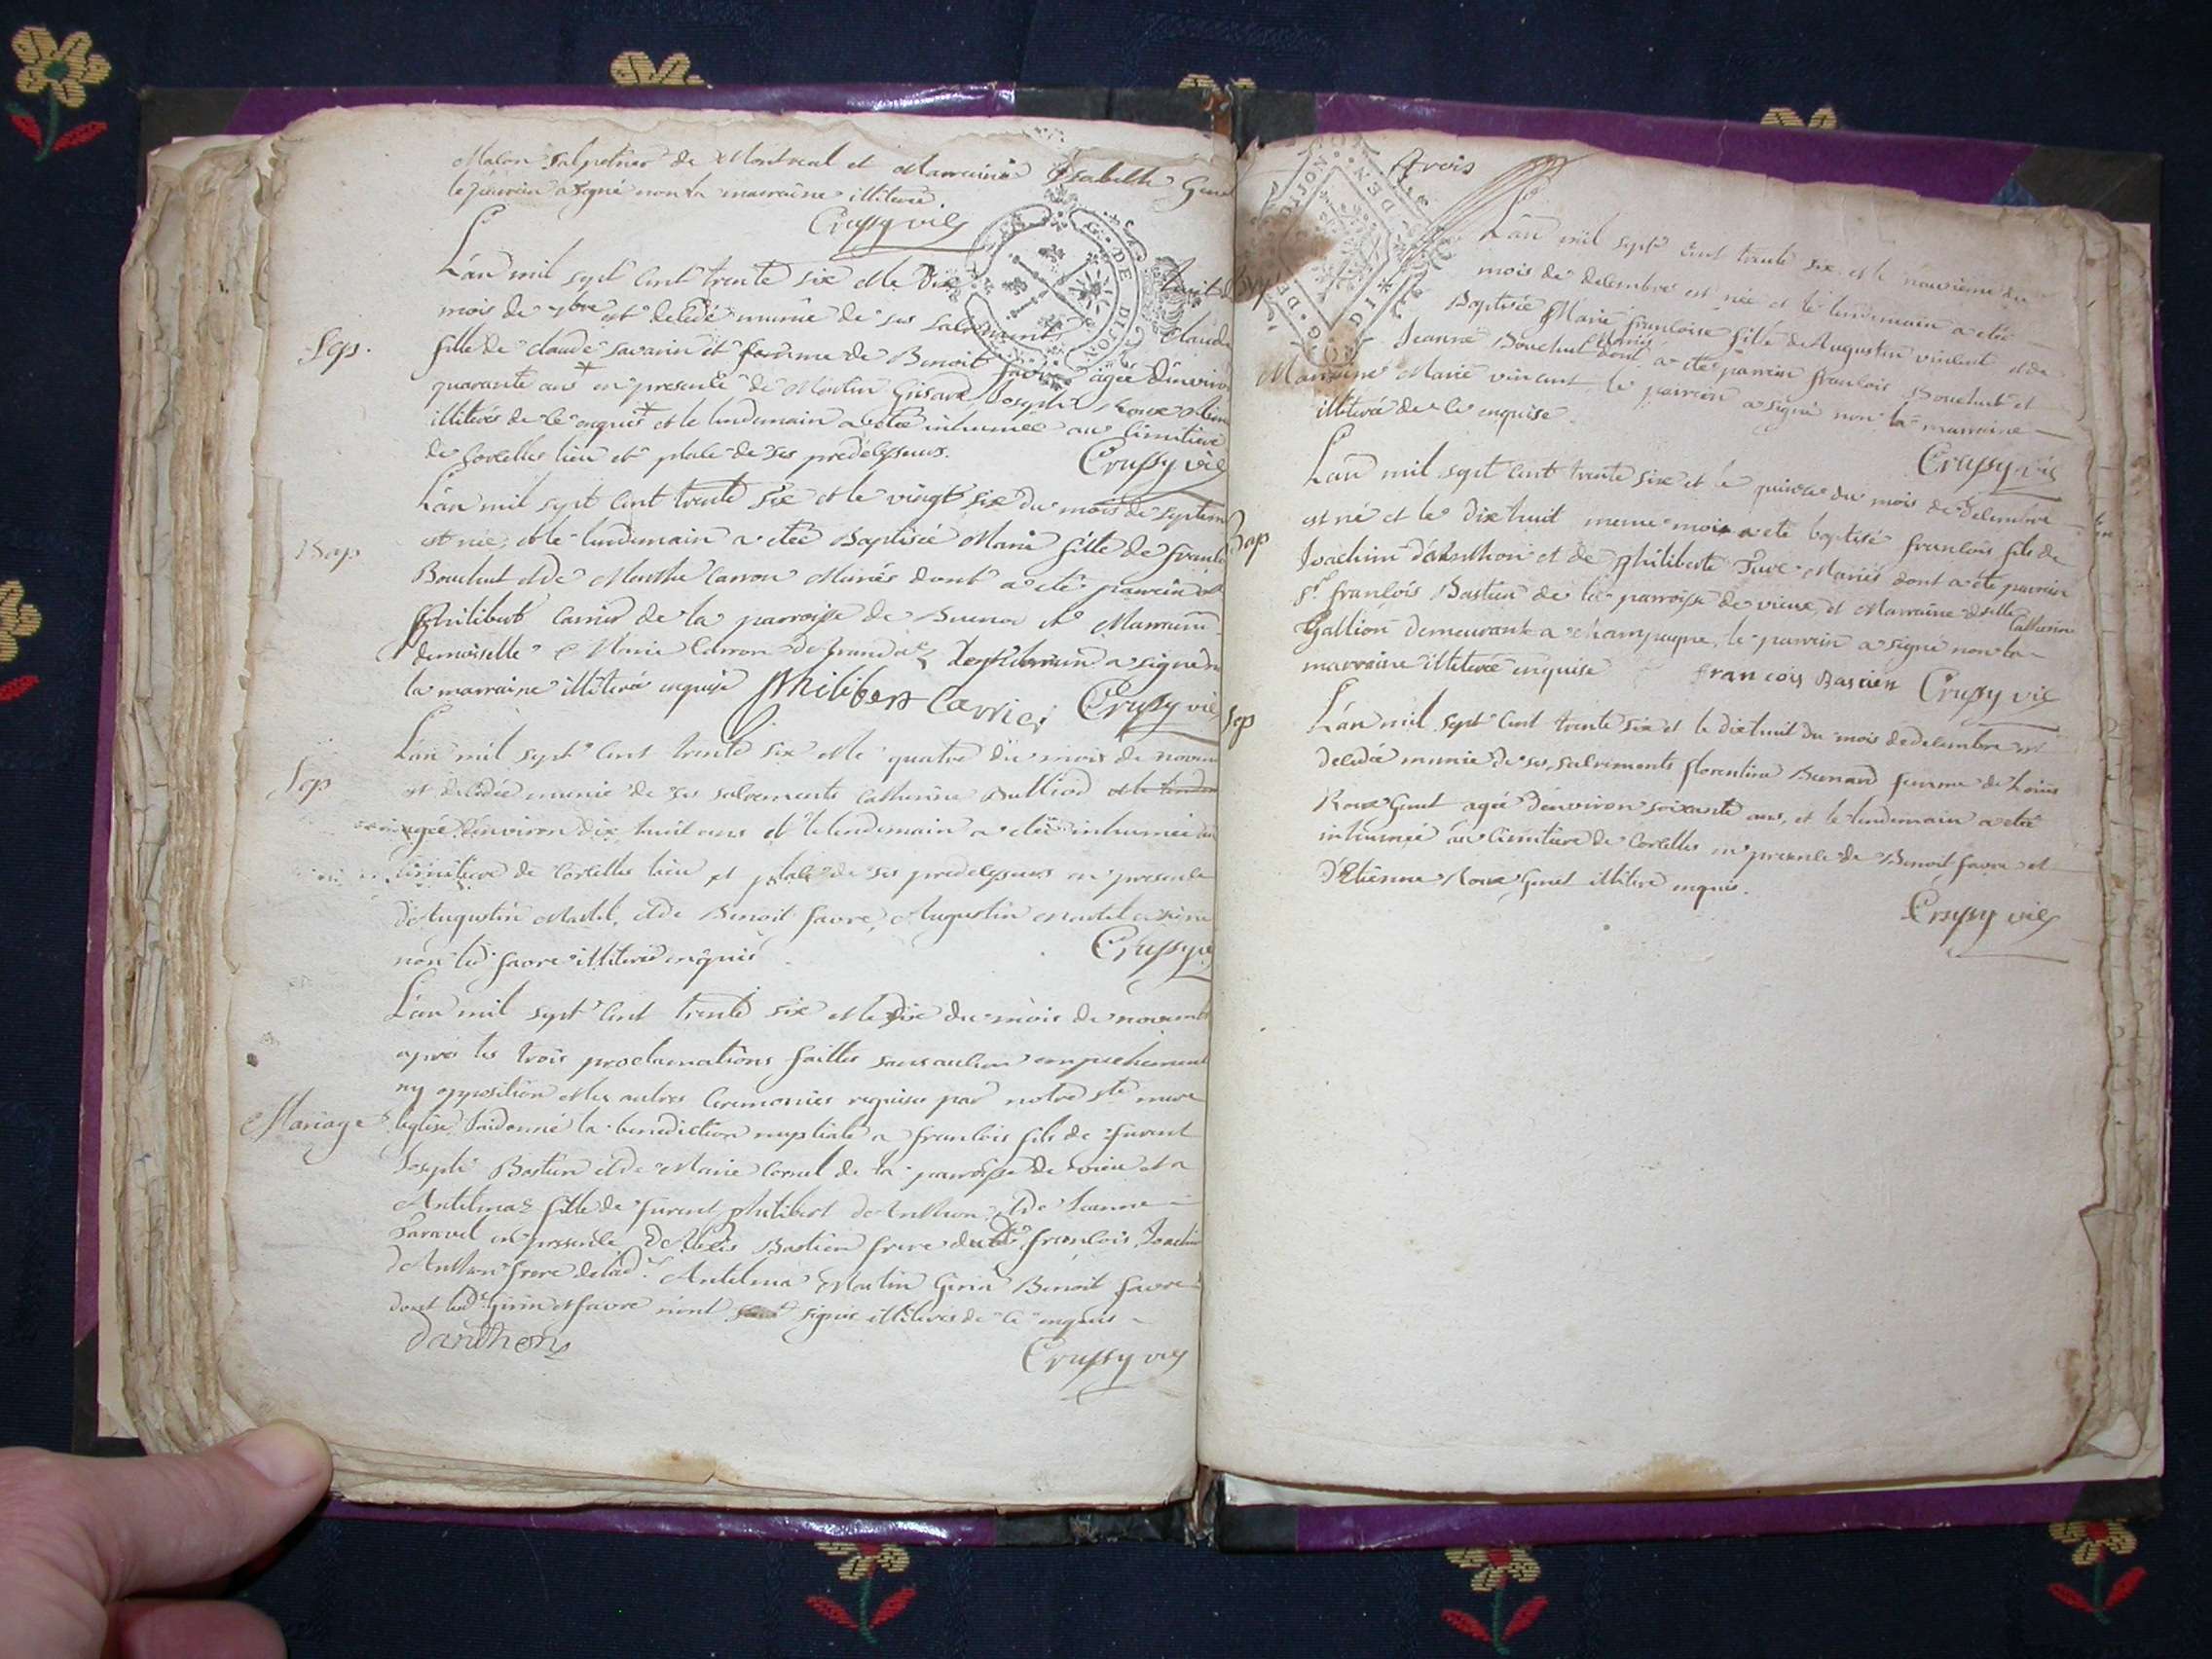 Macon salpetrier de Montreal et Marraine Isabelle
le parrain a signé non la marraine illiterée
Crussy vic
L'an mil sept cent trente six et le dix huit du
mois de 7bre est decedé munie de ses sacrements Claud
Sep.
fille de claude savarin et femme de Benoit favre agée d'environ
quarante ans en presence de Martin Girard Joseph Roux
illiterés de ce enquis et le lendemain a etée inhumée au cimitiere
de Corcelles lieu et place de ses predecesseurs.
Crussy vic
L'an mil sept cent trente six et le vingt six du mois de septem
Bap
est née, et le lendemain a etée Baptisée Marie fille de francois
Bouchut et de Marthe Carron Mariés dont a eté parrain
Philibert Carrier de la parroisse de et Marraine
demoiselle Marie Carron le parrain a signé non
la marraine illiterée enquise Philibert Carrier Crussy vic
L'an mil sept cent trente six et le quatre du mois de novem
Sep
est decedée munie de ses sacrements Catherine Bulliod
agée d'environ dix huit ans et le lendemain a etée inhumée au
cimitiere de Corcelles lieu et place de ses predecesseurs en presence
d'Augustin Martel, et de Benoit favre, Augustin Martel a signé
non led favre illiteré enquis
Crussy vic
L'an mil sept cent trente six et le dix du mois de novemb
apres les trois proclamations faittes sans aucun empechement
ny opposition et les autres Ceremonies requises par notre ste mere
Mariage
l'eglise j'ai donné la benediction nuptiale a francois fils de furent
Joseph Bastien et de Marie Cornet de la parroisse de vieu et a
Antelma fille de furent philibert de Anthon et de Jeanne
Paravel en presence de Bastien frere dud francois, Joachim
d'Anthon frere de lad Antelma Martin Girin Benoit favre
dont led Girin et favre n'ont signé illiterés de ce enquis
Danthon
Crussy vic
trois
L'an mil sept cent trente six et le neuvieme du
mois de decembre est née et le lendemain a etée
Baptisée Marie francoise fille de Augustin vincent et de
Jeanne Bouchut mariés dont a eté parrain francois Bouchut et
Marraine Marie vincent le parrain a signé non la marraine
illiterée de ce enquise
Crussy vic
L'an mil sept cent trente six et le quinze du mois de decembre
Bap
est né et le dix huit meme mois a eté baptisé francois fils de
Joachim d'Anthon et de Philiberte Mariés dont a eté parrain
sr francois Bastien de la parroisse de vieux, et Marraine dselle Catherine
Gallion demeurante a champagne, le parrain a signé non la
marraine illiterée enquise francois Bastien Crussy vic
Sep
L'an mil sept cent trente six et le dix huit du mois de decembre est
decedée munie de ses sacrements florentine Bernard femme de Louis
Roux Genet agée d'environ soixante ans, et le lendemain a etée
inhumée au Cimitiere de Corcelles en presence de Benoit favre et
d'Etienne Roux Genet illiteré enquis.
Crussy vic